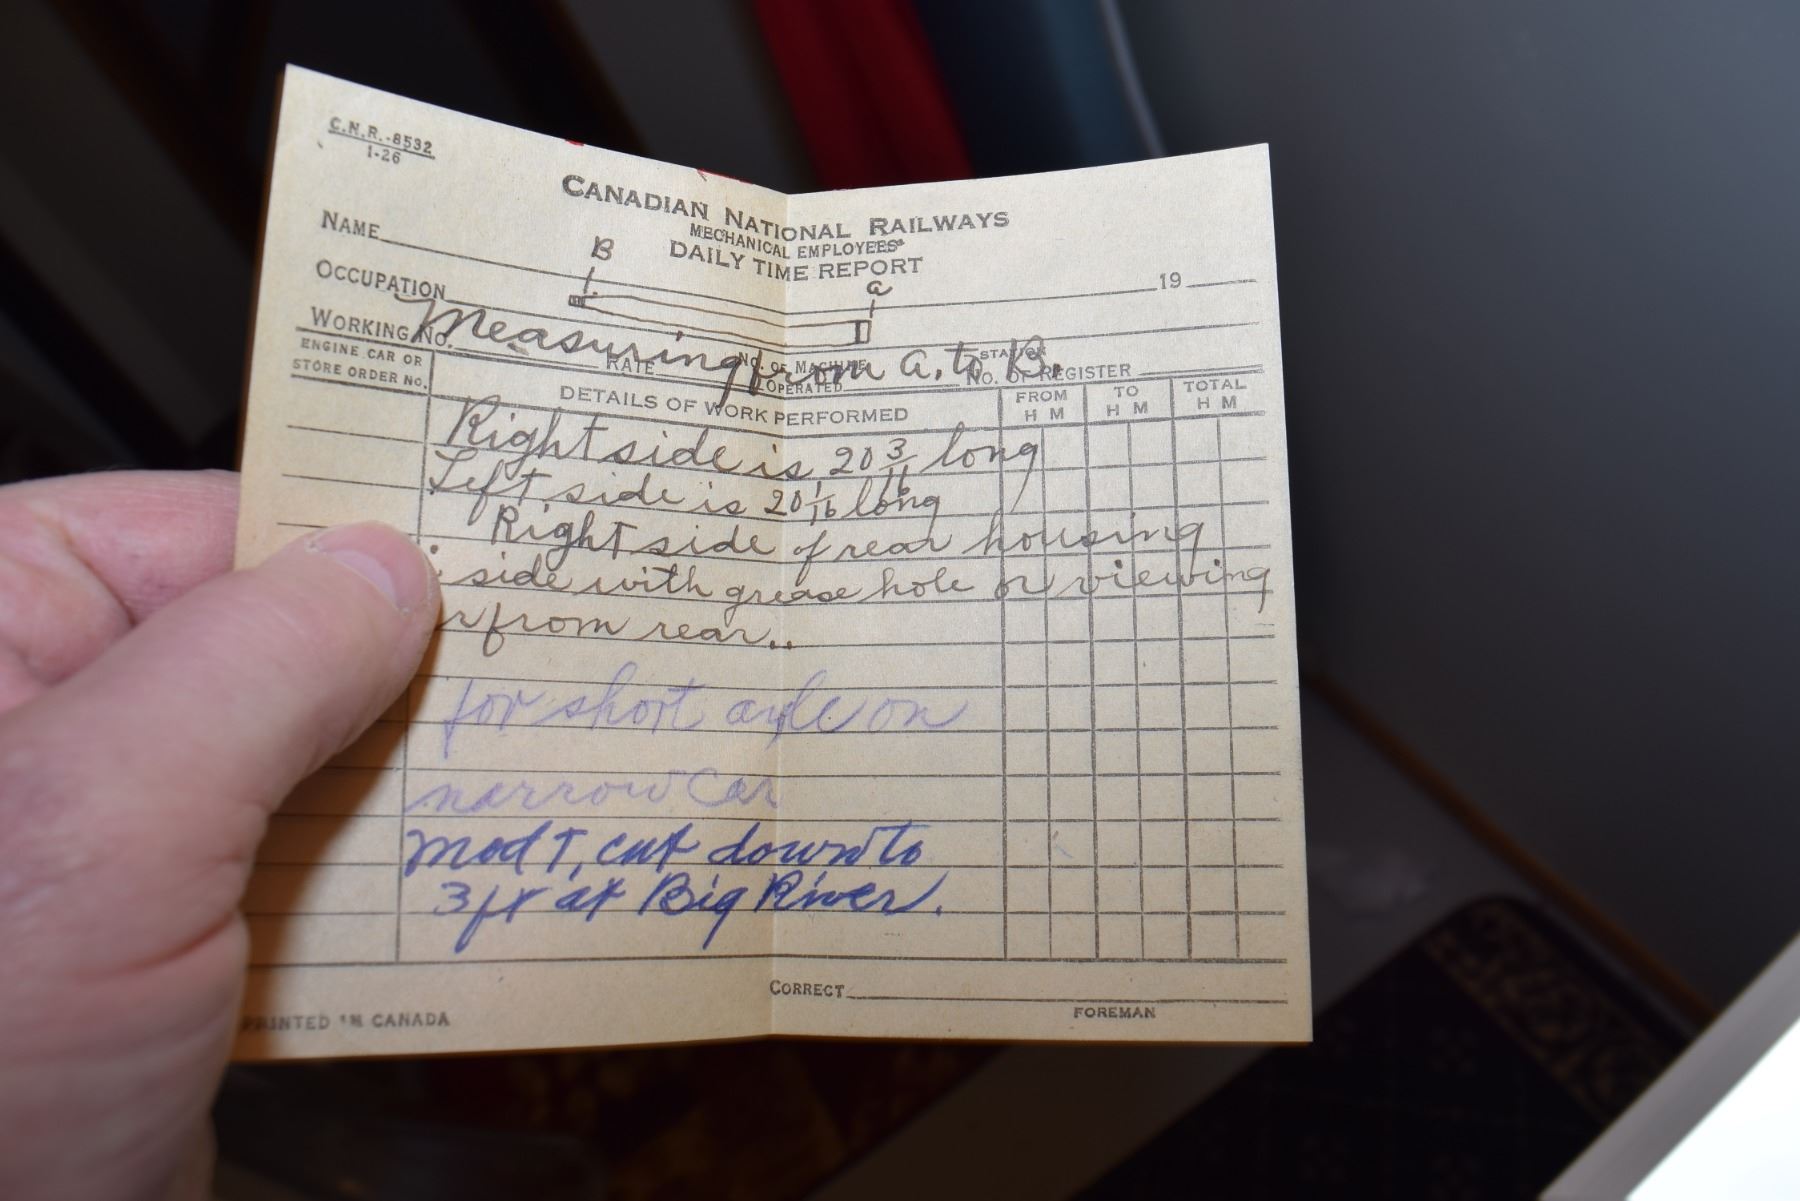 C.N.R.-8532
1-26
CANADIAN NATIONAL RAILWAYS
MECHANICAL EMPLOYEES'
DAILY TIME REPORT
NAME 19
B a
OCCUPATION
WORKING NO. RATE NO. OF MACHINE OPERATED STATION NO. OF REGISTER
Measuring from a. to B.
ENGINE CAR OR STORE ORDER NO. DETAILS OF WORK PERFORMED FROM H M TO H M TOTAL H M
Right side is 20 3/16 long
Left side is 20 1/16 long
Right side of rear housing
side with grease hole or viewing
from rear..
for short axle on
narrow Car
Mod T, cut down to
3 ft at Big River.
CORRECT
FOREMAN
PRINTED IN CANADA